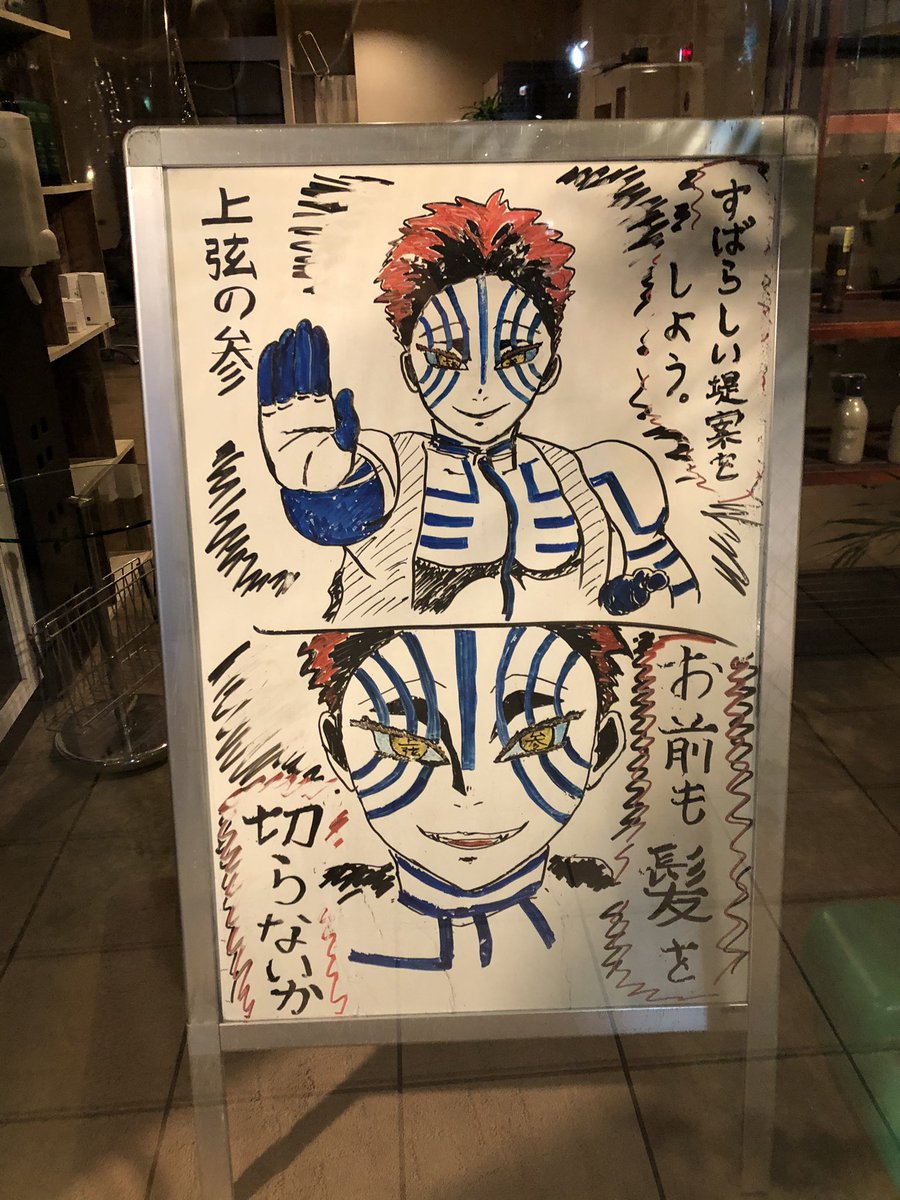 すばらしい堤案を
しよう。
上弦の参
お前も髪を
切らないか